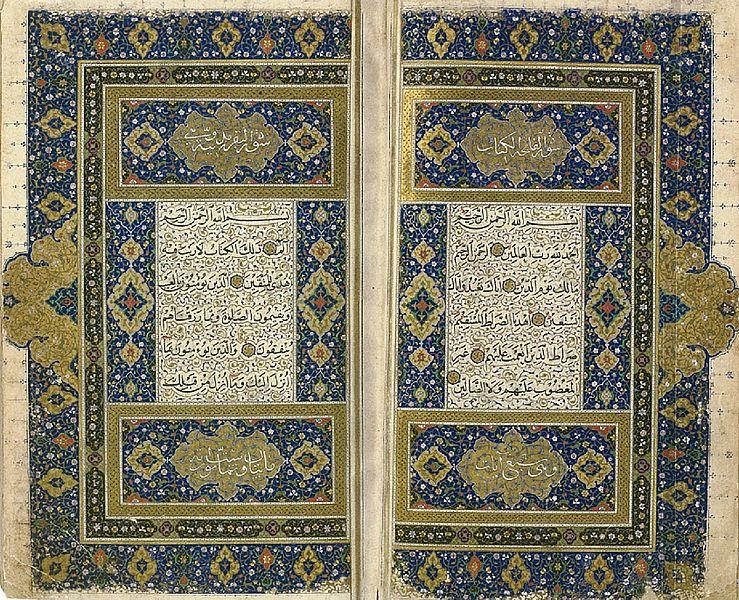 سورة فاتحة الكتاب
بسم الله الرحمن الرحيم
الحمد لله رب العالمين الرحمن الرحيم
مالك يوم الدين اياك نعبد واياك
نستعين اهدنا الصراط المستقيم
صراط الذين انعمت عليهم غير
المغضوب عليهم ولا الضالين
وهي سبع آيات
سورة البقرة
بسم الله الرحمن الرحيم
الم ذلك الكتاب لا ريب فيه
هدى للمتقين الذين يؤمنون بالغيب
ويقيمون الصلوة ومما رزقناهم
ينفقون والذين يؤمنون بما
انزل اليك وما انزل من قبلك